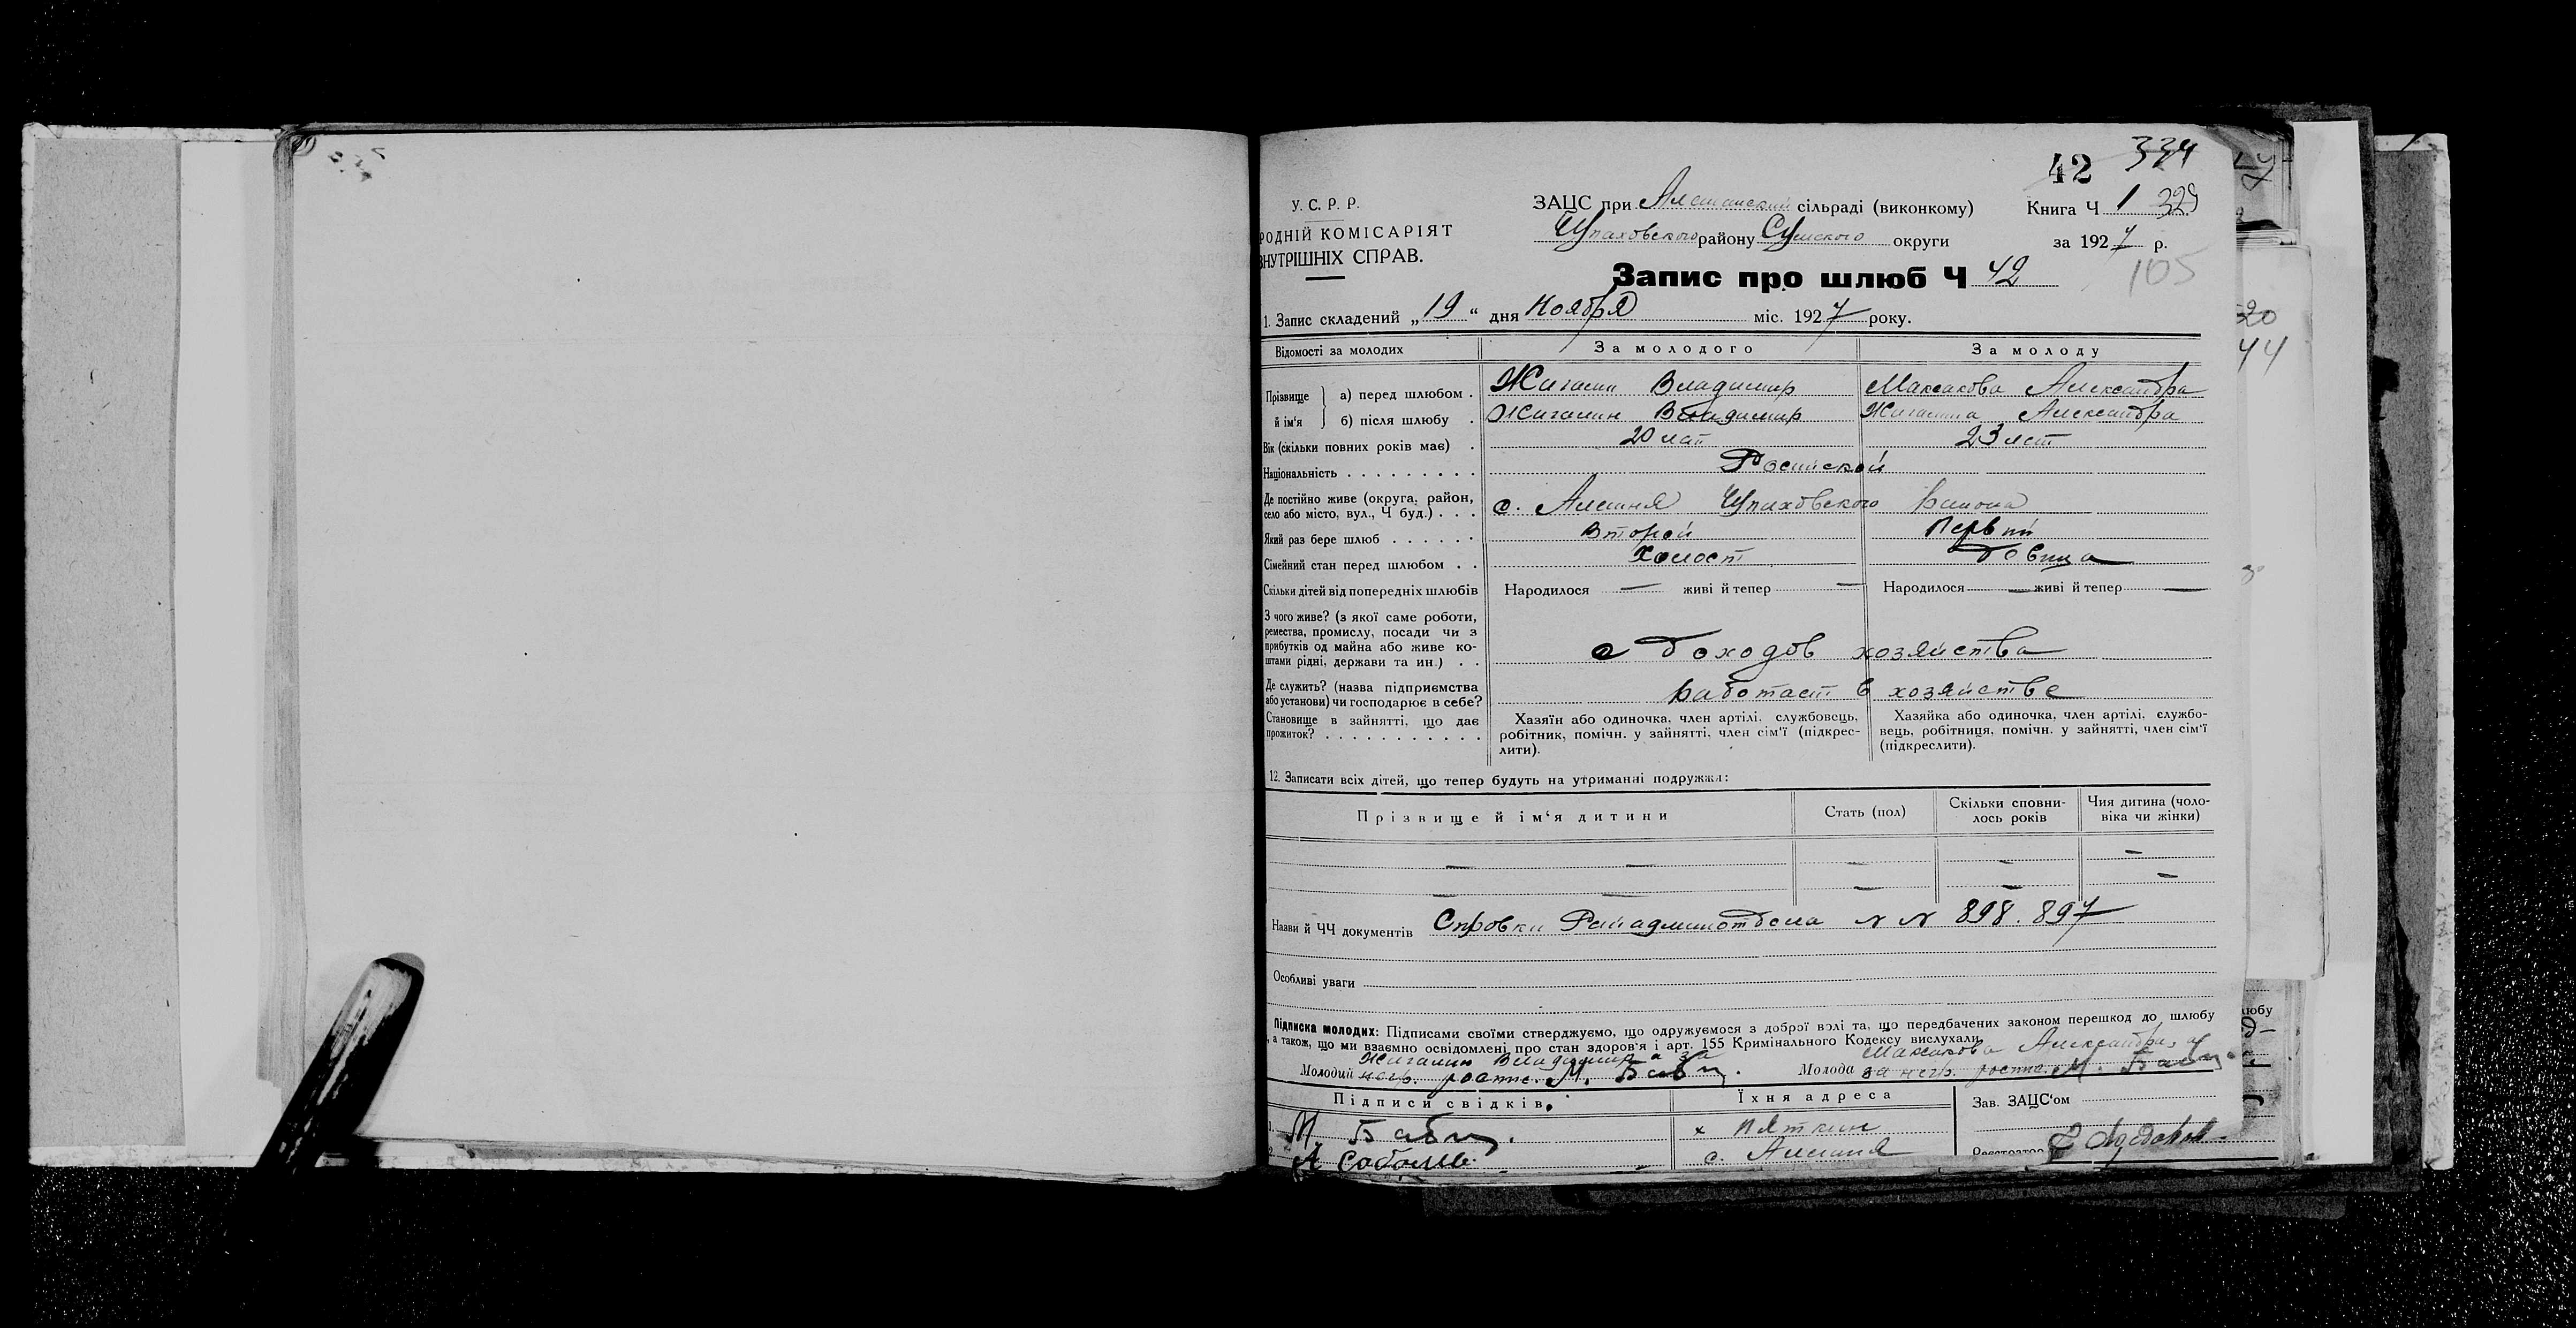 42 334
У. С. Р. Р.
РОДНІЙ КОМІСАРІЯТ
ВНУТРІШНІХ СПРАВ.
ЗАЦС при сільраді (виконкому) Книга Ч 1 329
району Сумского округи за 1927 р.
Запис про шлюб Ч 42 105
1. Запис складений „19“ дня Ноября міс. 1927 року.
Відомості за молодих За молодого За молоду
Прізвище й ім'я а) перед шлюбом . Жигалин Владимир Максакова Александра
б) після шлюбу . Жигалин Владимир Жигалина Александра
Вік (скільки повних років має) . 20 лет 23 лет
Національність . . . . . . . . . Росийской
Де постійно живе (округа, район, село або місто, вул., Ч буд.) . . . с. Алешня района
Який раз бере шлюб . . . . . . Второй Первый
Сімейний стан перед шлюбом . . Холост
Скільки дітей від попередніх шлюбів Народилося — живі й тепер — Народилося — живі й тепер —
З чого живе? (з якої саме роботи,
ремества, промислу, посади чи з
прибутків од майна або живе ко-
штами рідні, держави та ин.) . . с доходов хозяйства
Де служить? (назва підприємства
або установи) чи господарює в себе? работает в хозяйстве
Становище в зайнятті, що дає
прожиток? . . . . . . . . . . .
Хазяїн або одиночка, член артілі, службовець,
робітник, помічн. у зайнятті, член сім'ї (підкрес-
лити).
Хазяйка або одиночка, член артілі, службо-
вець, робітниця, помічн. у зайнятті, член сім'ї
(підкреслити).
12. Записати всіх дітей, що тепер будуть на утриманні подружжя:
Прізвище й ім'я дитини Стать (пол) Скільки сповни-
лось років Чия дитина (чоло-
віка чи жінки)
— — — — —
— — — — —
Назви й ЧЧ документів Справки Райадминотдела N N 898. 897
Особливі уваги
Підписка молодих: Підписами своїми стверджуємо, що одружуємося з доброї волі та, що передбачених законом перешкод до шлюбу
, а також, що ми взаємно освідомлені про стан здоров'я і арт. 155 Кримінального Кодексу вислухали.
Жигалин Владимир а за Максакова Александра, а
Молодий негр. роспис. М. Молода за негр. роспис. М.
Підписи свідків. Їхня адреса Зав. ЗАЦС'ом
1. М. х Пяткин
2. А Соболев. с. Алешня Реєстратор